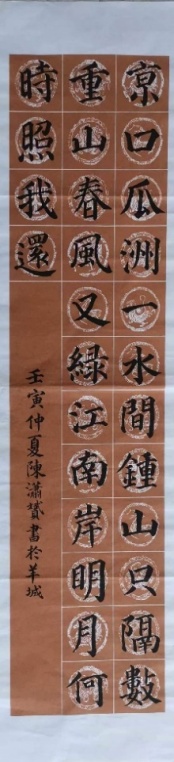 京口瓜洲一水間鍾山只隔數
重山春風又緑江南岸明月何
時照我還
壬寅仲夏陳瀟贇書於羊城